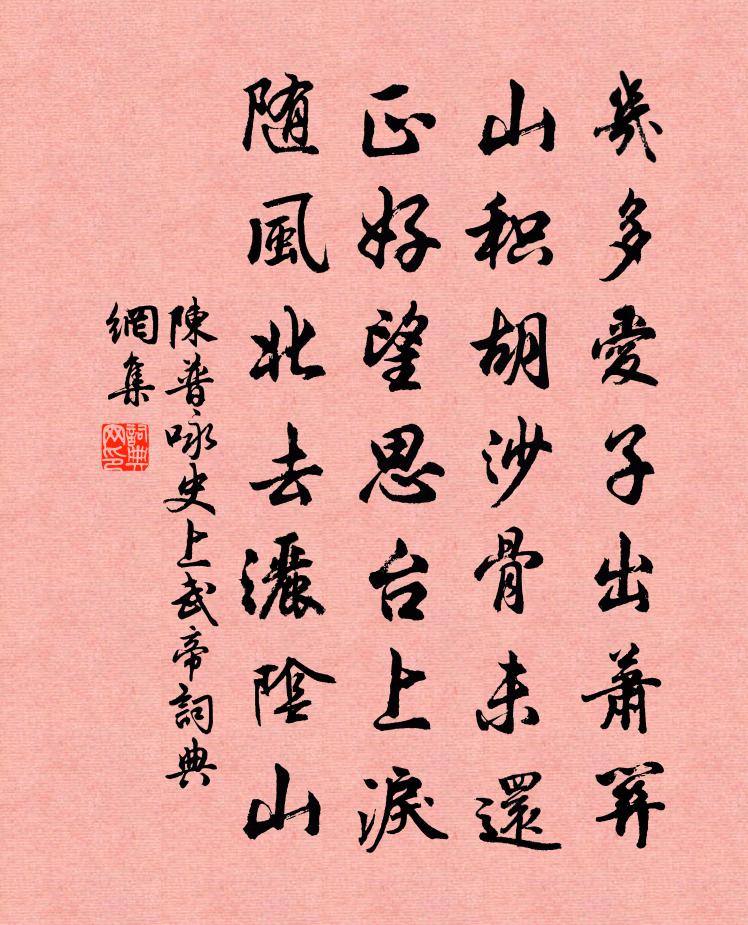 幾多愛子出蕭關
山积胡沙骨未還
正好望思台上淚
随風北去灑陰山
陳普咏史上武帝詞典
網集
詞典
网印